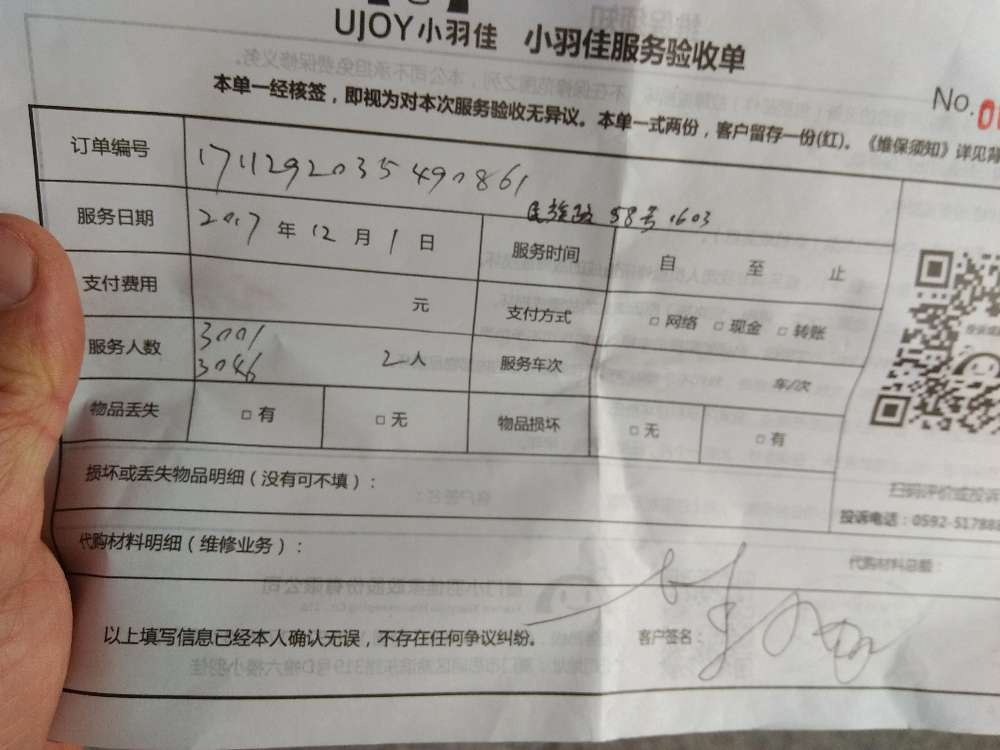 UJOY小羽佳 小羽佳服务验收单
No.
本单一经核签，即视为对本次服务验收无异议。本单一式两份，客户留存一份(红)。《维保须知》详见背
订单编号 1711292035490861
民族路 58号 1603
服务日期 2017 年 12 月 1 日 服务时间 自 至 止
支付费用 元 支付方式 □ 网络 □ 现金 □ 转账
服务人数 3001 3046 2人 服务车次 车/次
物品丢失 □ 有 □ 无 物品损坏 □ 无 □ 有
损坏或丢失物品明细（没有可不填）：
扫码评价或投诉
投诉电话：0592-517888
代购材料明细（维修业务）： 代购材料总额：
以上填写信息已经本人确认无误，不存在任何争议纠纷。 客户签名：